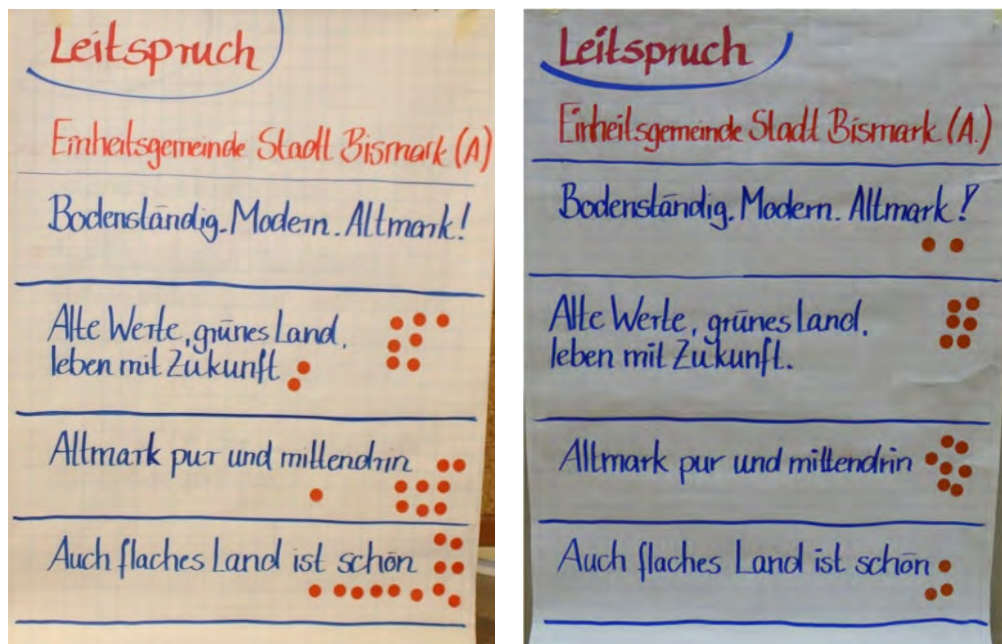 Leitspruch
Einheitsgemeinde Stadt Bismark (A)
Bodenständig. Modern. Altmark!
Alte Werte, grünes Land,
leben mit Zukunft
Altmark pur und mittendrin
Auch flaches Land ist schön
Leitspruch
Einheitsgemeinde Stadt Bismark (A.)
Bodenständig. Modern. Altmark!
Alte Werte, grünes Land,
leben mit Zukunft.
Altmark pur und mittendrin
Auch flaches Land ist schön